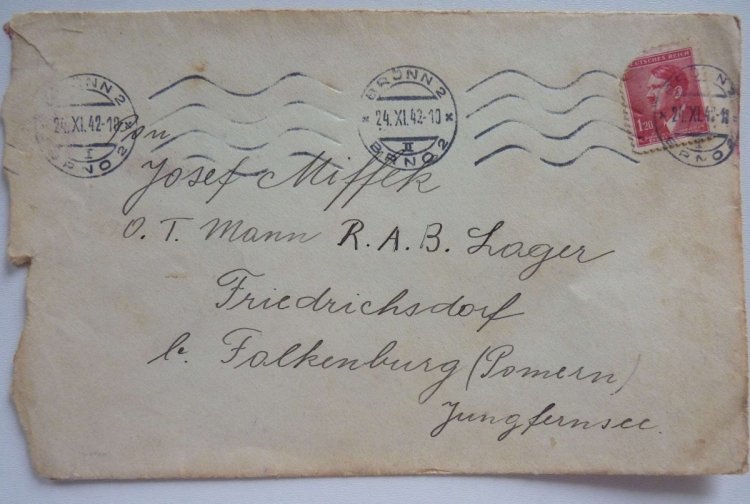 BRÜNN 2
24. XI. 42-18
I
BRNO 2
BRÜNN 2
* 24. XI. 42-10 *
II
BRNO 2
DEUTSCHES REICH
1.20
24. XI. 42
BRNO 2
Josef Miffek
O. T. Mann R. A. B. Lager
Friedrichsdorf
b. Falkenburg (Pomern)
Jungfernsee.